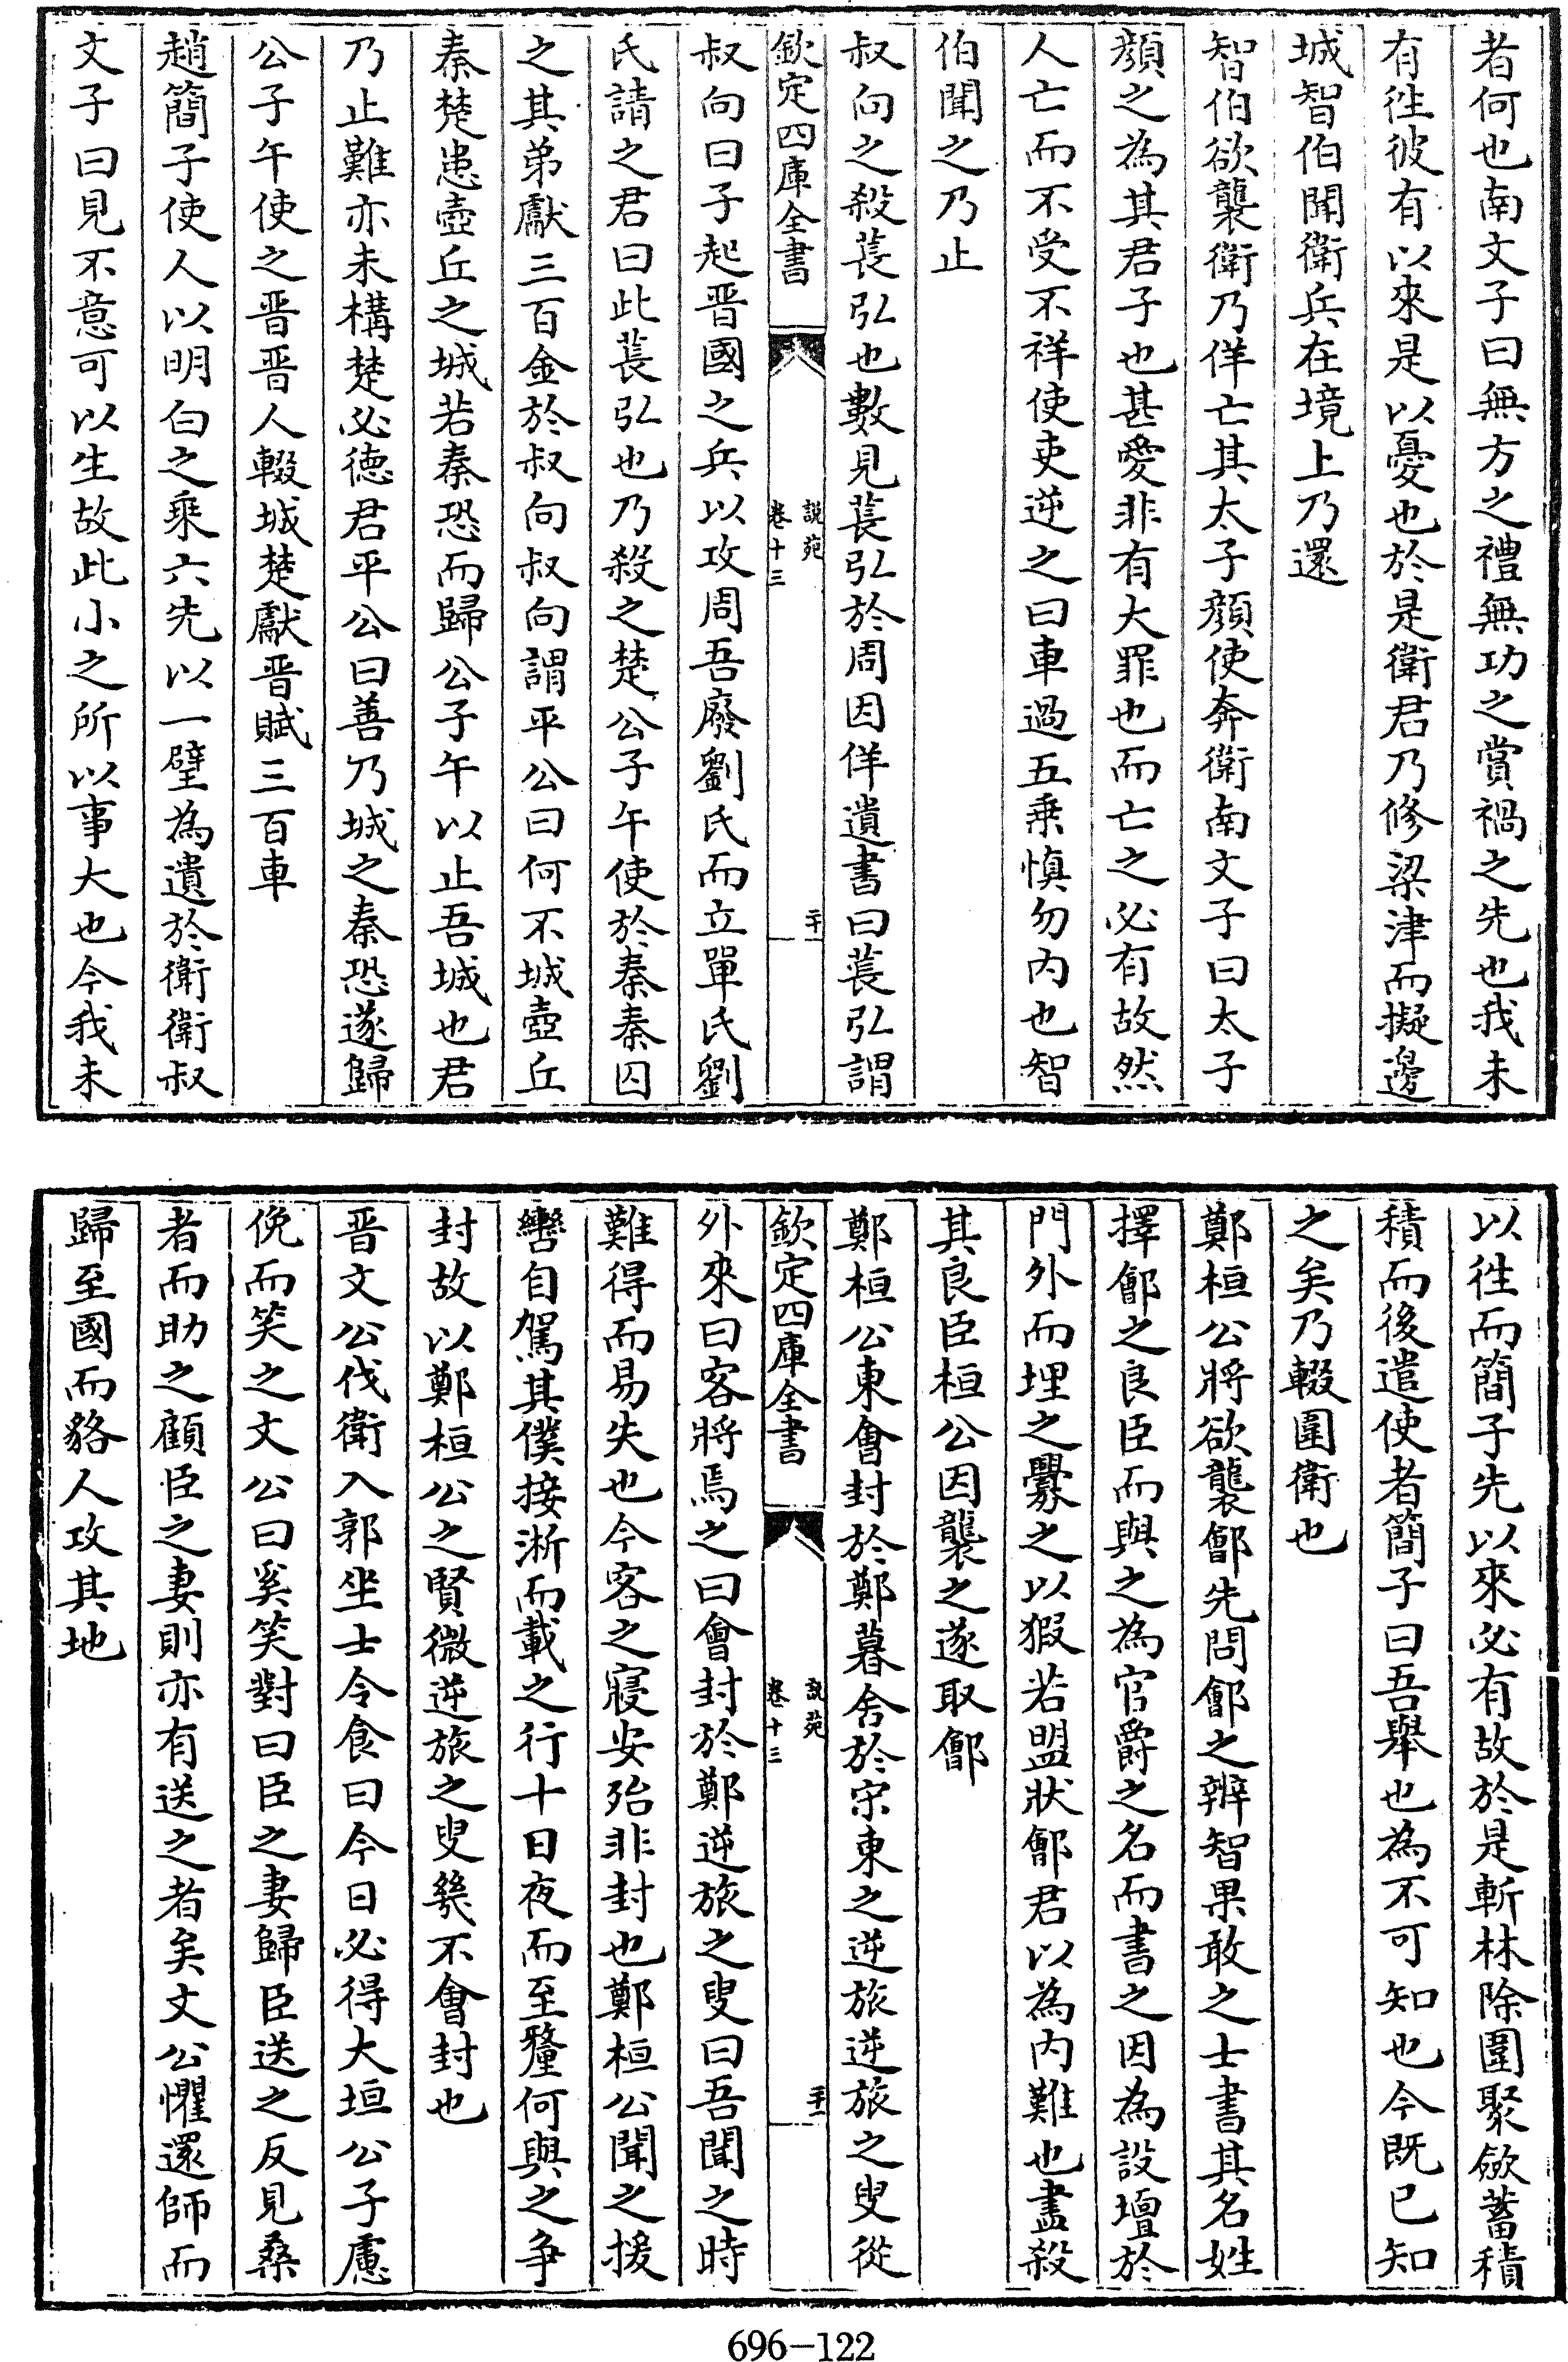 者何也南文子曰無方之禮無功之賞禍之先也我未
有徃彼有以來是以憂也於是衛君乃修梁津而擬邊
城智伯聞衛兵在境上乃還
智伯欲襲衛乃佯亡其太子顔使奔衛南文子曰太子
顔之為其君子也甚愛非有大罪也而亡之必有故然
人亡而不受不祥使吏逆之曰車過五乗慎勿内也智
伯聞之乃止
叔向之殺萇弘也數見萇弘於周因佯遺書曰萇弘謂
欽定四庫全書
説苑
卷十三
二十
叔向曰子起晋國之兵以攻周吾廢劉氏而立單氏劉
氏請之君曰此萇弘也乃殺之楚公子午使於秦秦囚
之其弟獻三百金於叔向叔向謂平公曰何不城壺丘
秦楚患壺丘之城若秦恐而歸公子午以止吾城也君
乃止難亦未構楚必徳君平公曰善乃城之秦恐遂歸
公子午使之晋晋人輟城楚獻晋賦三百車
趙簡子使人以明白之乘六先以一璧為遺於衛衛叔
文子曰見不意可以生故此小之所以事大也今我未
以徃而簡子先以來必有故於是斬林除圍聚斂蓄積
積而後遣使者簡子曰吾舉也為不可知也今既已知
之矣乃輟圍衛也
鄭桓公將欲襲鄶先問鄶之辨智果敢之士書其名姓
擇鄶之良臣而與之為官爵之名而書之因為設壇於
門外而埋之釁之以猳若盟狀鄶君以為内難也盡殺
其良臣桓公因襲之遂取鄶
鄭桓公東會封於鄭暮舍於宋東之逆旅逆旅之叟從
欽定四庫全書
説苑
卷十三
二十一
外來曰客將焉之曰會封於鄭逆旅之叟曰吾聞之時
難得而易失也今客之寢安殆非封也鄭桓公聞之援
轡自駕其僕接淅而載之行十日夜而至釐何與之争
封故以鄭桓公之賢微逆旅之叟幾不會封也
晋文公伐衛入郭坐士令食曰今日必得大垣公子慮
俛而笑之文公曰奚笑對曰臣之妻歸臣送之反見桑
者而助之顧臣之妻則亦有送之者矣文公懼還師而
歸至國而貉人攻其地
696-122